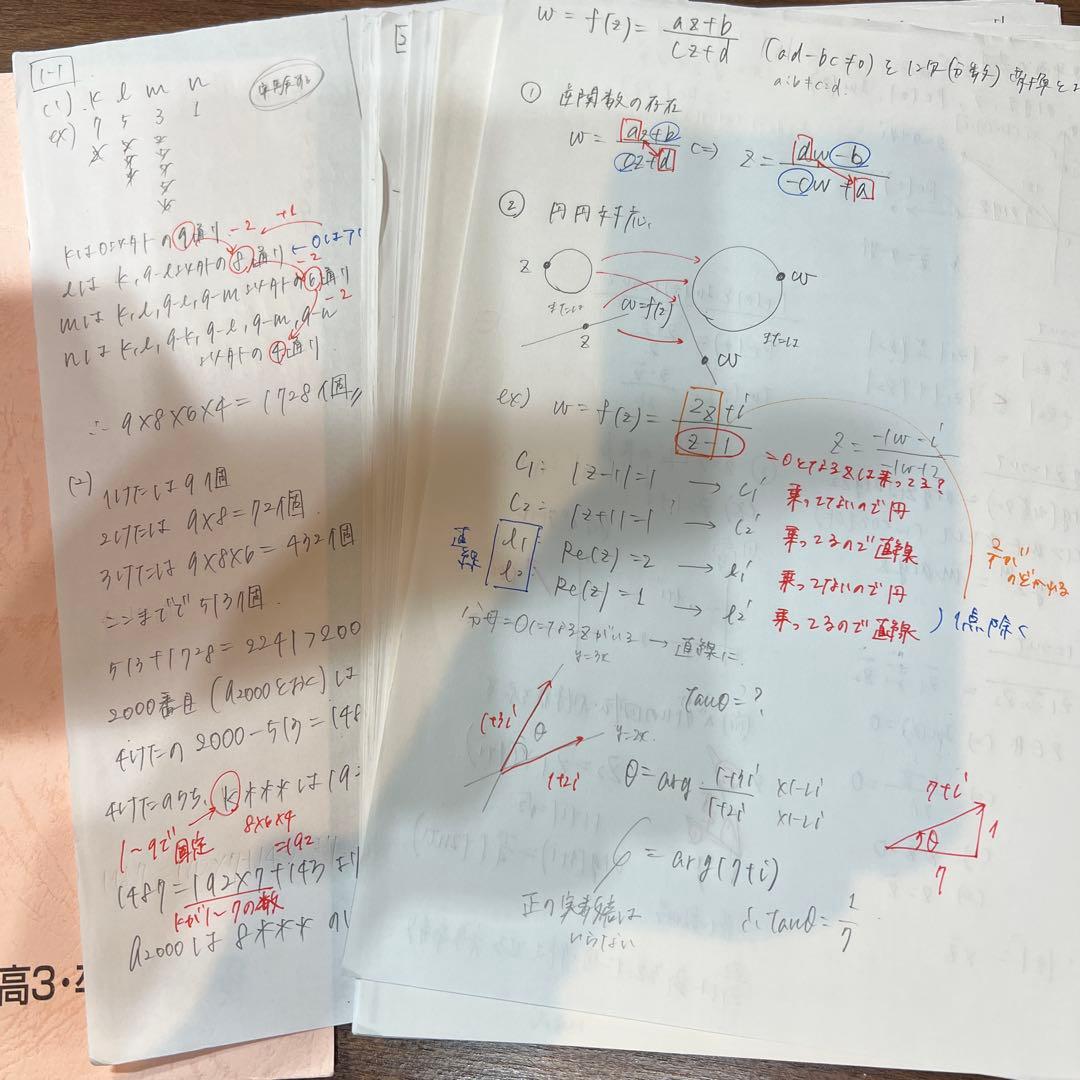 1-1
(1) k l m n
ex) 7 5 3 1
kは0以外の9通り -2 +1
lは k, 9-l以外の8通り ←0は
mは k, l, 9-l, 9-m 以外の6通り -2
nは k, l, 9-k, 9-l, 9-m, 9-n
以外の4通り
∴ 9×8×6×4=1728個
(2)
1けたは 9個
2けたは 9×8=72個
3けたは 9×8×6=432個
ここまでで 513個.
513+1728=2241>200
2000番目 (a2000とおく) は
4けたの 2000-513=148
4けたのうち, k***は 19
1~9で固定
8×6×4
=192
1487=192×7+143 より
kが1~7の数
a2000は 8*** の
高3・
[2
w = f(z) = az+b/cz+d (ad-bc≠0) を1次(分数)変換と
a:b≠c:d.
① 逆関数の存在
w = az+b/cz+d ⇔ z = dw-b/-cw+a
② 円円対応.
z w
または w=f(z) または
z w
ex) w = f(z) = 2z+i/z-1
z = -1w-i/-1w+2
=0となるzは乗ってる?
C1: |z-1|=1 → C1' 乗ってないので円
C2: |z+1|=1 → C2' 乗ってるので直線
直線 l1 Re(z)=2 → l1' 乗ってないので円
l2 Re(z)=1 → l2' 乗ってるので直線 ) 1点除く
2/1が
のぞかれる
分母=0になるzがいる → 直線に.
y=3x
tanθ=?
1+3i θ y=2x.
1+2i
θ = arg 1+3i/1+2i ×1-2i ×1-2i
7+i
θ 1
7
= arg(7+i)
正の実数倍は
いらない
∴ tanθ = 1/7